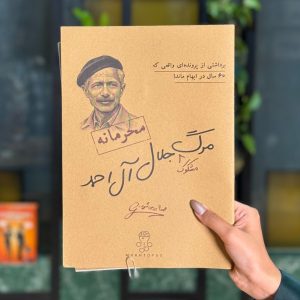 برداشتی از پرونده‌ای واقعی که
۶۰ سال در ابهام ماند!
محرمانه
مرگ جلال آل احمد
مشکوک